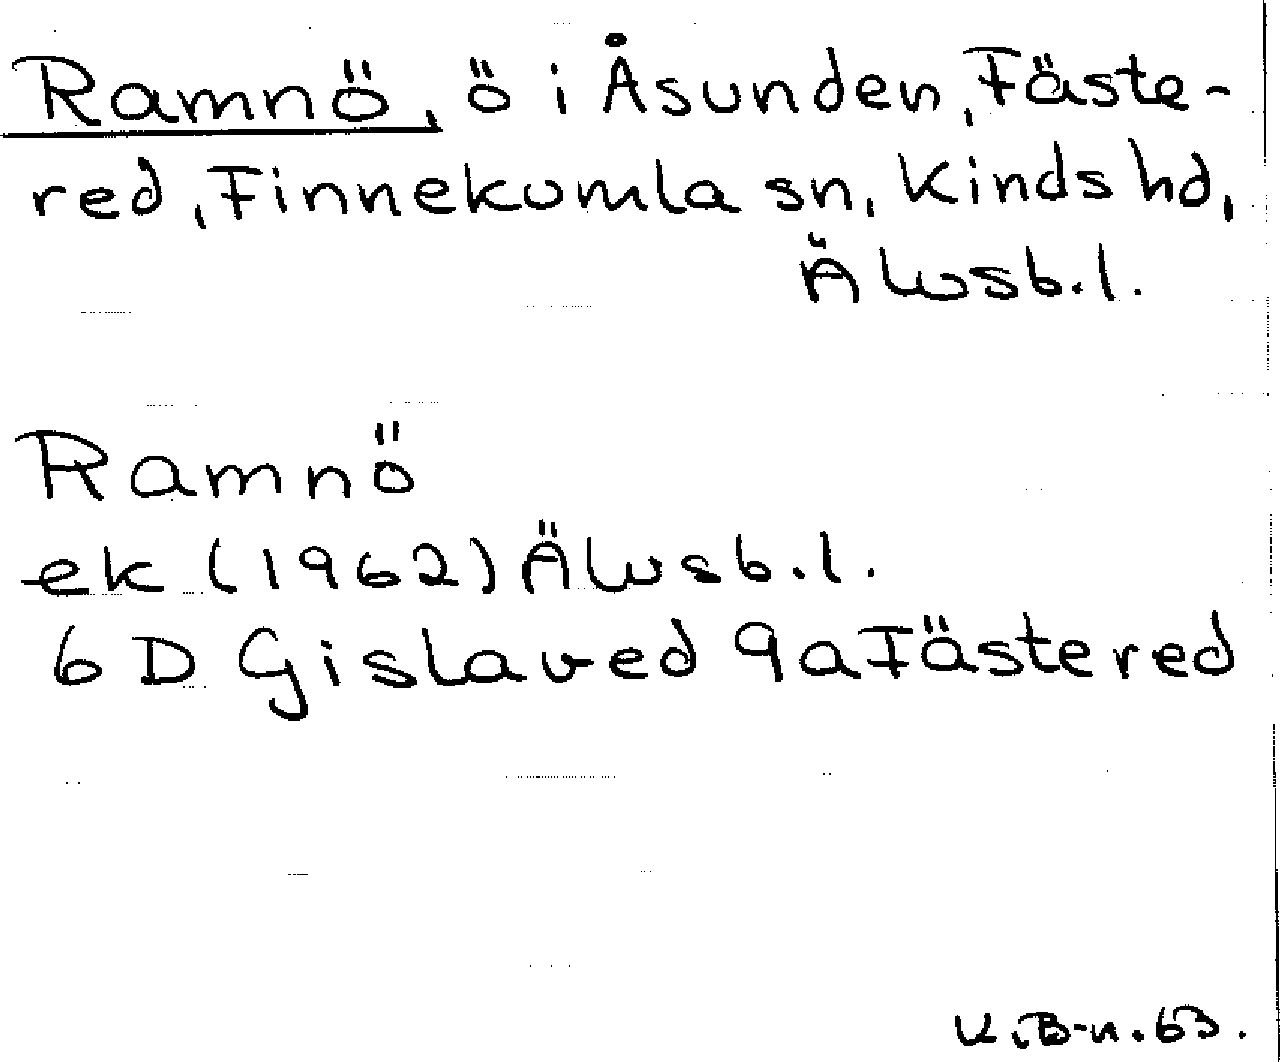 Ramnö, ö i Åsunden, Fäste-
red, Finnekumla sn, Kinds hd,
Älvsb.l.
Ramnö
ek (1962) Älvsb.l.
6 D Gislaved 9a Fästered
K.B-n.63.